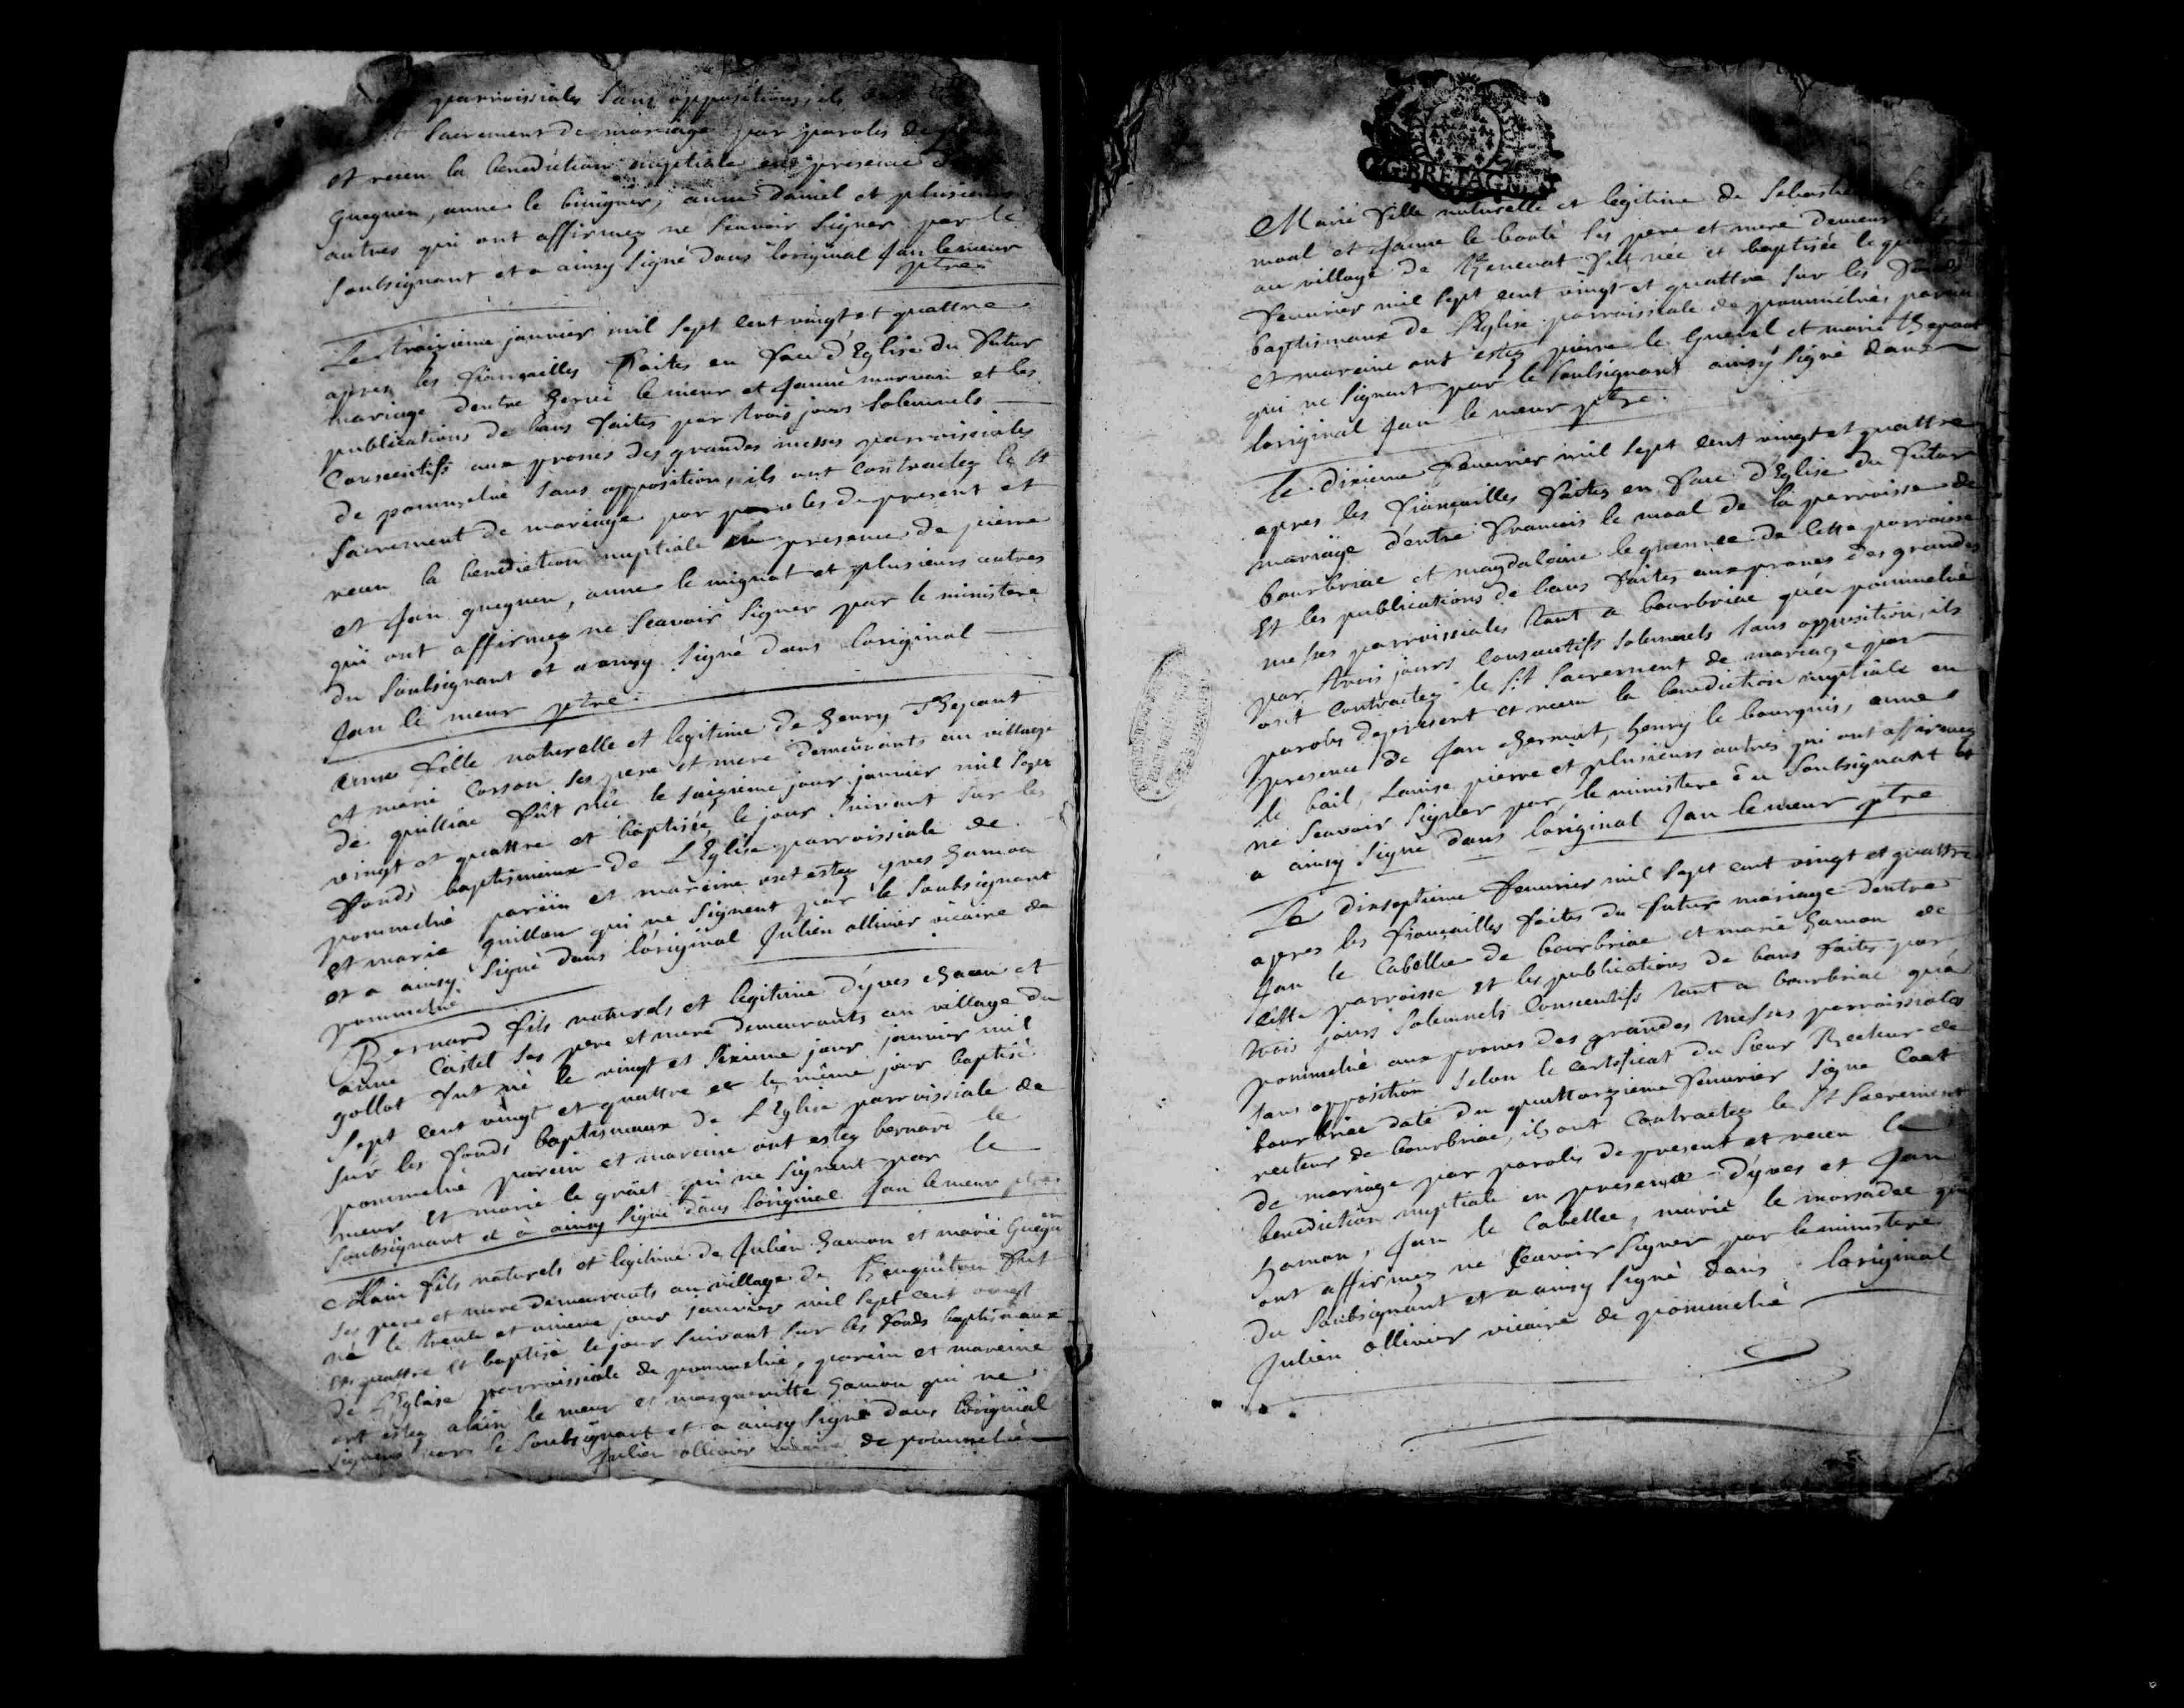 parroissiales sans oppositions, ils
sacrement de mariage par paroles de
et receu la benediction nuptiale en presence
gueguen, anne le bivigner, anne daniel et plusieurs
autres qui ont affirmez ne scavoir signer par le
soubsignant et a ainsy signé dans loriginal Jan le meur
ptre
Le traizieme janvier mil sept cent vingt et quattre
apres les fiançailles faites en face d'Eglise du futur
mariage dentre hervé le meur et Janne morvan et les
publications de bans faites par trois jours solemnels
consecutifs aux prones des grandes messes parroissiales
de pommelvé sans opposition, ils ont contractez le st
sacrement de mariage par paroles de present et
receu la benediction nuptiale en presence de pierre
et Jan gueguen, anne le mignot et plusieurs autres
qui ont affirmez ne scavoir signer par le ministere
du soubsignant et a ainsy signé dans loriginal
Jan le meur ptre
Anne fille naturelle et legitime de henry Thepaut
et marie Corson ses pere et mere demeurants au village
de quilliac fut née le saizieme jour janvier mil sept
vingt et quattre et baptisée le jour suivant sur les
fonds baptismeaux de L'Eglise parroissiale de
pommelvé parein et mareine ont estez yves hamon
et marie guillou qui ne signent par le soubsignant
et a ainsy signé dans l'original Julien ollivier vicaire de
pommelvé
Bernard fils naturels et legitime d'yves
anne Castel ses pere et mere demeurants au village du
gollot fut né le vingt et sixieme jour janvier mil
sept cent vingt et quattre et le même jour baptisé
sur les fonds baptismaux de L'Eglise parroissiale de
pommelvé parein et mareine ont estez bernard le
meur et marie le graët qui ne signent par le
soubsignant et à ainsy signé dans loriginal Jan le meur ptre
Alain fils naturels et legitime de Julien hamon et marie Gueguen
ses pere et mere demeurants au village de fut
né le trente et unieme jour janvier mil sept cent vingt
et quattre et baptisé le jour suivant sur les fonds baptismaux
de L'Eglise parroissiale de pommelvé, parein et mareine
ont estez alain le meur et margueritte hamon qui ne
signent par le soubsignant et a ainsy signé dans l'original
Julien ollivier vicaire de pommelvé
G. BRETAGNE
Marie fille naturelle et legitime de Sebastien
moal et Janne le bonté ses pere et mere demeurants
au village de fut née et baptisée le
fevvrier mil sept cent vingt et quattre sur les fonds
baptismaux de L'Eglise parroissiale de pommelvé, parein
et mareine ont estez pierre le guevel et marie thepaut
qui ne signent par le soubsignant ainsy signé dans
loriginal Jan le meur ptre.
Le dixieme fevvrier mil sept cent vingt et quattre
apres les fiançailles faites en face d'Eglise du futur
mariage d'entre francois le moal de la parroisse de
bourbriac et magdelaine le guennec de cette parroisse
Et les publications de bans faites aux prones des grandes
messes parroissiales tant a bourbriac qu'a pommelvé
par trois jours consecutifs solemnels sans opposition, ils
ont contractez le st sacrement de mariage par
paroles de present et receu la benediction nuptiale en
presence de Jan, henry le bourgnis, anne
le bail, Louise pierre et plusieurs autres qui ont affirmez
ne scavoir signer par le ministere du soubsignant et
a ainsy signé dans l'original Jan le meur ptre
Le dixseptieme fevvrier mil sept cent vingt et quattre
apres les fiançailles faites du futur mariage dentre
Jan le Cabellec de bourbriac et marie hamon de
cette parroisse et les publications de bans faites par
trois jours solemnels consecutifs tant a bourbriac qu'a
pommelvé aux prones des grandes messes parroissiales
sans opposition selon le certificat du Sieur Recteur de
bourbriac daté du quattorzieme fevvrier signé Coat
recteur de bourbriac, ils ont contractez le St sacrement
de mariage par paroles de present et receu la
benediction nuptiale en presence d'yves et Jan
hamon, Jan le Cabellec, marie le morzadec qui
ont affirmez ne scavoir signer par le ministere
du soubsignant et a ainsy signé dans loriginal
Julien ollivier vicaire de pommelvé